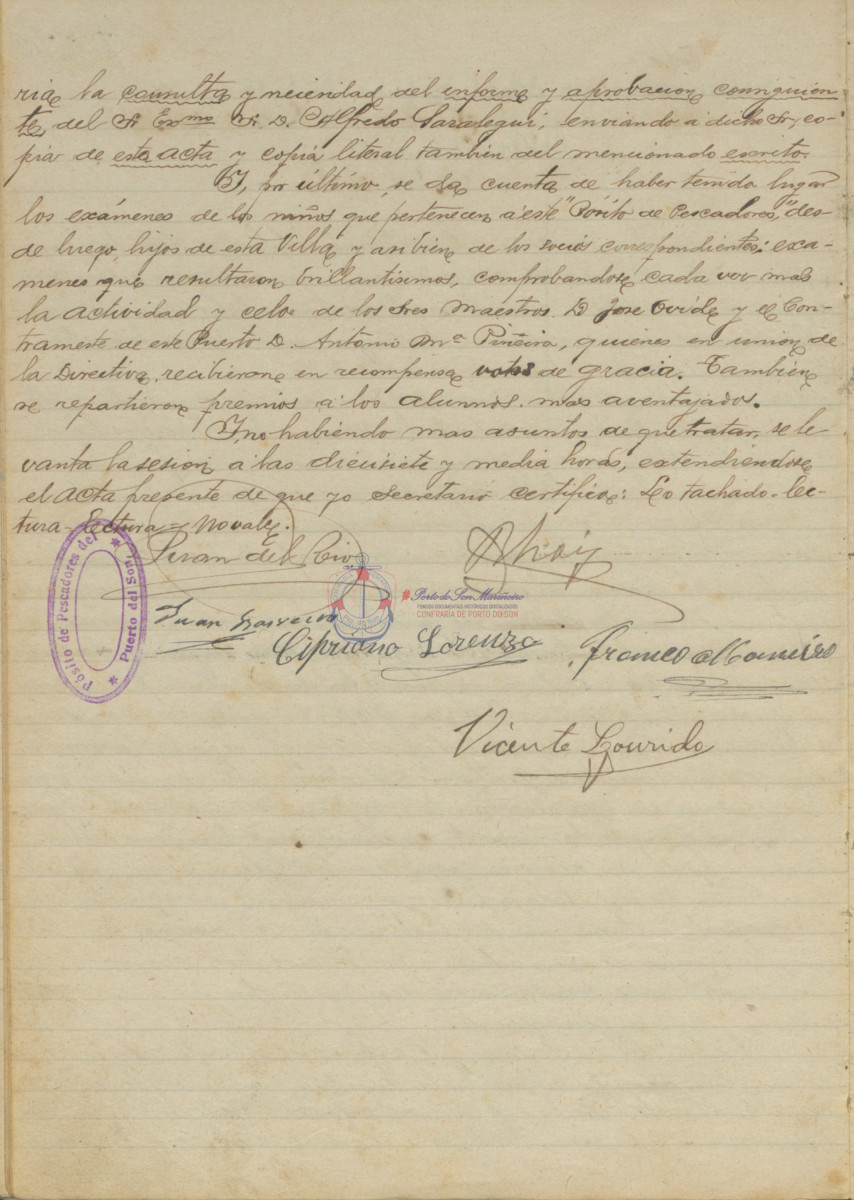 ria la consulta y necesidad del informe y aprobacion consiguien-
te, del Sr Exmo Sr. D. Alfredo Saralegui, enviando á dicho Sr, co-
pia de esta acta y copia literal tambien del mencionado escrito.
Y, por último, se da cuenta de haber tenido lugar
los exámenes de los niños que pertenecen á este "Pósito de Pescadores," des-
de luego, hijos de esta Villa y asibien de los socios correspondientes: exa-
menes que resultaron brillantisimos, comprobandose cada vez mas
la actividad y celo de los tres Maestros D Jose Ovide y el Con-
tramestre de este Puerto D. Antonio Mª Piñeiro, quienes en union de
la Directiva, recibieron en recompensa votos de gracia. Tambien
se repartieron premios á los alumnos mas aventajados.
Y no habiendo mas asuntos de que tratar, se le-
vanta la sesion á las diecisiete y media horas, extendiendose
el acta presente de que yo Secretario certifico: Lo tachado-lec-
tura-Lectura=No vale.
Juan del Rio
Juan
Cipriano Lorenzo
Franco Maneiro
Vicente Lourido
Pósito de Pescadores del Puerto del Son
Porto do Son Mariñeiro
FONDOS DOCUMENTAIS HISTÓRICOS DIXITALIZADOS
CONFRARÍA DE PORTO DO SON